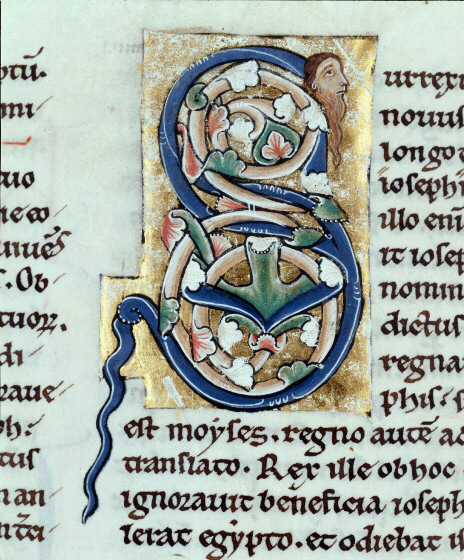 ptū.
mi
aio
ne eo
uiues
. Ob
tuor.
di
raue
ph:
tus
n an
S
urrexi
nouus
longo t
ioseph
illo eni
it iosep
nomin
dictus
regna
phis: s
est moyses. regno autē ae
translato. Rex ille ob hoc
ignorauit beneficia ioseph
lerat egypto. et odiebat is